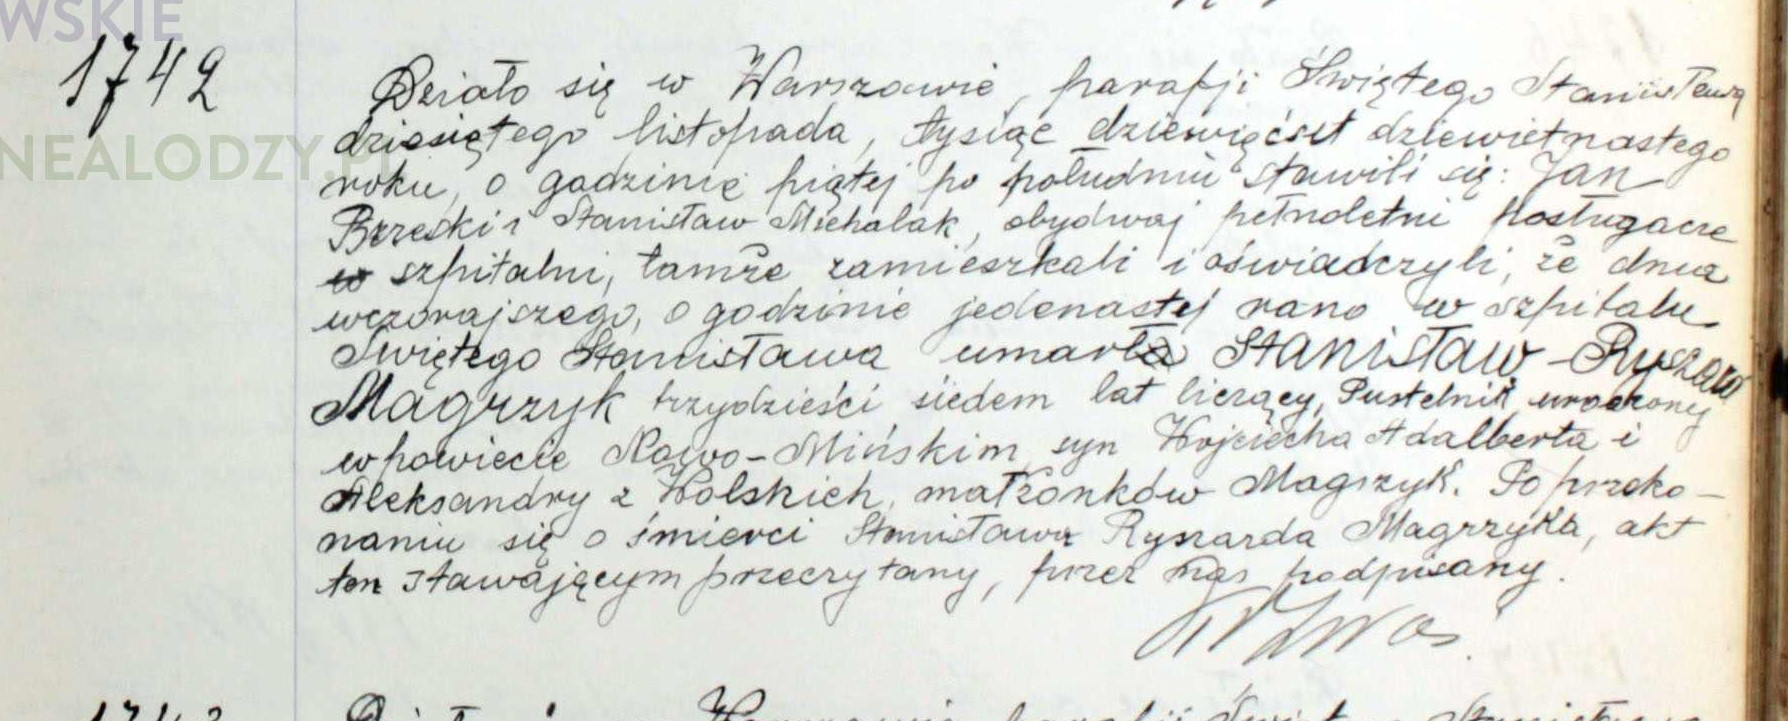 WSKIE
NEALODZY.PL
1742
Działo się w Warszawie, parafji Świętego Stanisława
dziesiątego listopada, tysiąc dziewięćset dziewiętnastego
roku, o godzinie piątej po południu stawili się: Jan
Brzeski i Stanisław Michalak, obydwaj pełnoletni posługacze
w szpitalni, tamże zamieszkali i oświadczyli, że dnia
wczorajszego, o godzinie jedenastej rano w szpitalu
Świętego Stanisława umarł Stanisław-Ryszard
Magrzyk trzydzieści siedem lat liczący, Pustelnik urodzony
w powiecie Nowo-Mińskim syn Wojciecha Adalberta i
Aleksandry z Wolskich, małżonków Magrzyk. Po przeko-
naniu się o śmierci Stanisława Ryszarda Magrzyka, akt
ten stawającym przeczytany, przez nas podpisany.
1743